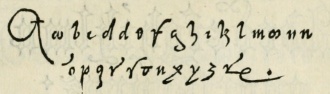 A a b c d d e f g h i k l m o n n
o p q r r s t u x y z & e .